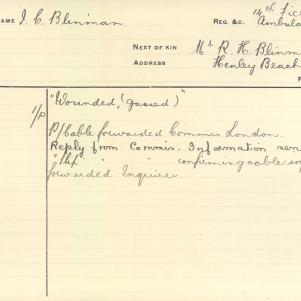 NAME I. C. Blinman REG. &C. 14th Fiel
Ambula
NEXT OF KIN Mr R. H. Blinm
ADDRESS Henley Beach
"Wounded, (Gassed)"
1/P P/Cable forwarded Commis London.
Reply from Commis. Information sen
" " confirming cable
forwarded Inquirer.